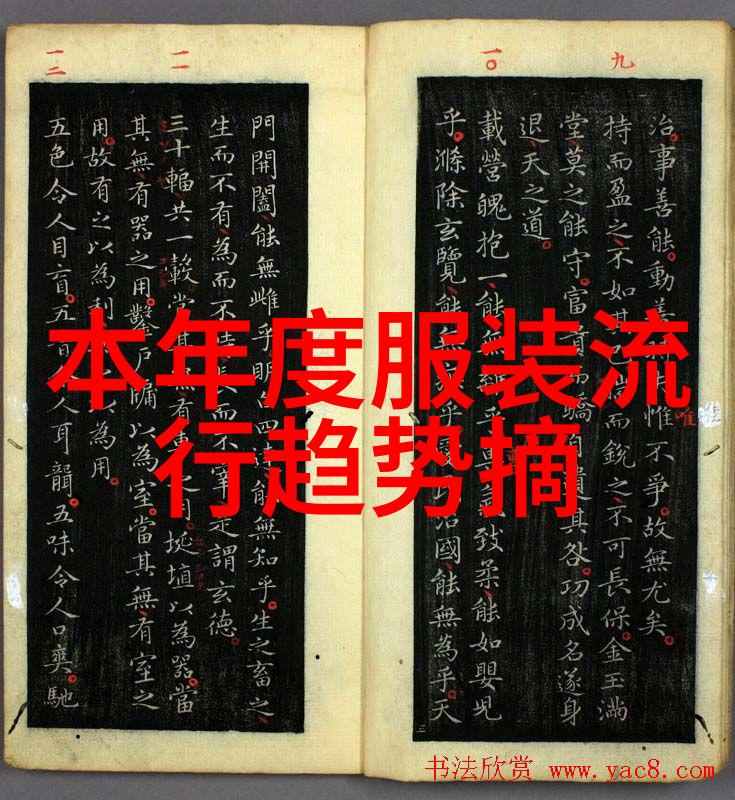 本年度服装流
行趋势摘
九
一〇
治。事善能。動善惟不爭。故無尤矣。
唯
持而盈之、不如其揣而銳之、不可長保。金玉滿
堂、莫之能守。富貴而驕自遺其咎功成名遂身
退、天之道。
載營魄抱一、能無離乎專致柔、能如嬰兒
乎。滌除玄覽、能無乎治國、能無為乎。天
一一
一二
門開闔、能無雌乎。明白四達能無知乎。生之畜之、
生而不有、為而不長而不宰是謂玄德。
三十輻、共一轂、當其無有之用。埏埴以為器。當
其無、有器之用。鑿戶牖以為室。當其無、有室之
用。故有之以為利以為用。
五色令人目盲。五音人耳聾。五味令人口爽。馳
书法欣赏 www.yac8.com